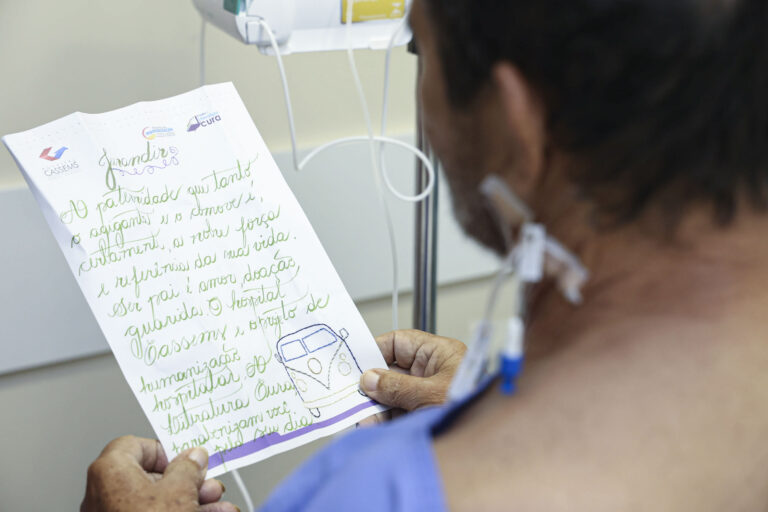 CASSEMS
cura
Jurandir
A paternidade que tanto
o agiganta e o comove é,
certamente, a nobre força
e referência da sua vida.
Ser pai é amor, doação,
guarida. O hospital
Cassems e o projeto de
humanização
hospitalar A
Literatura Cura
parabenizam você
pelo seu dia